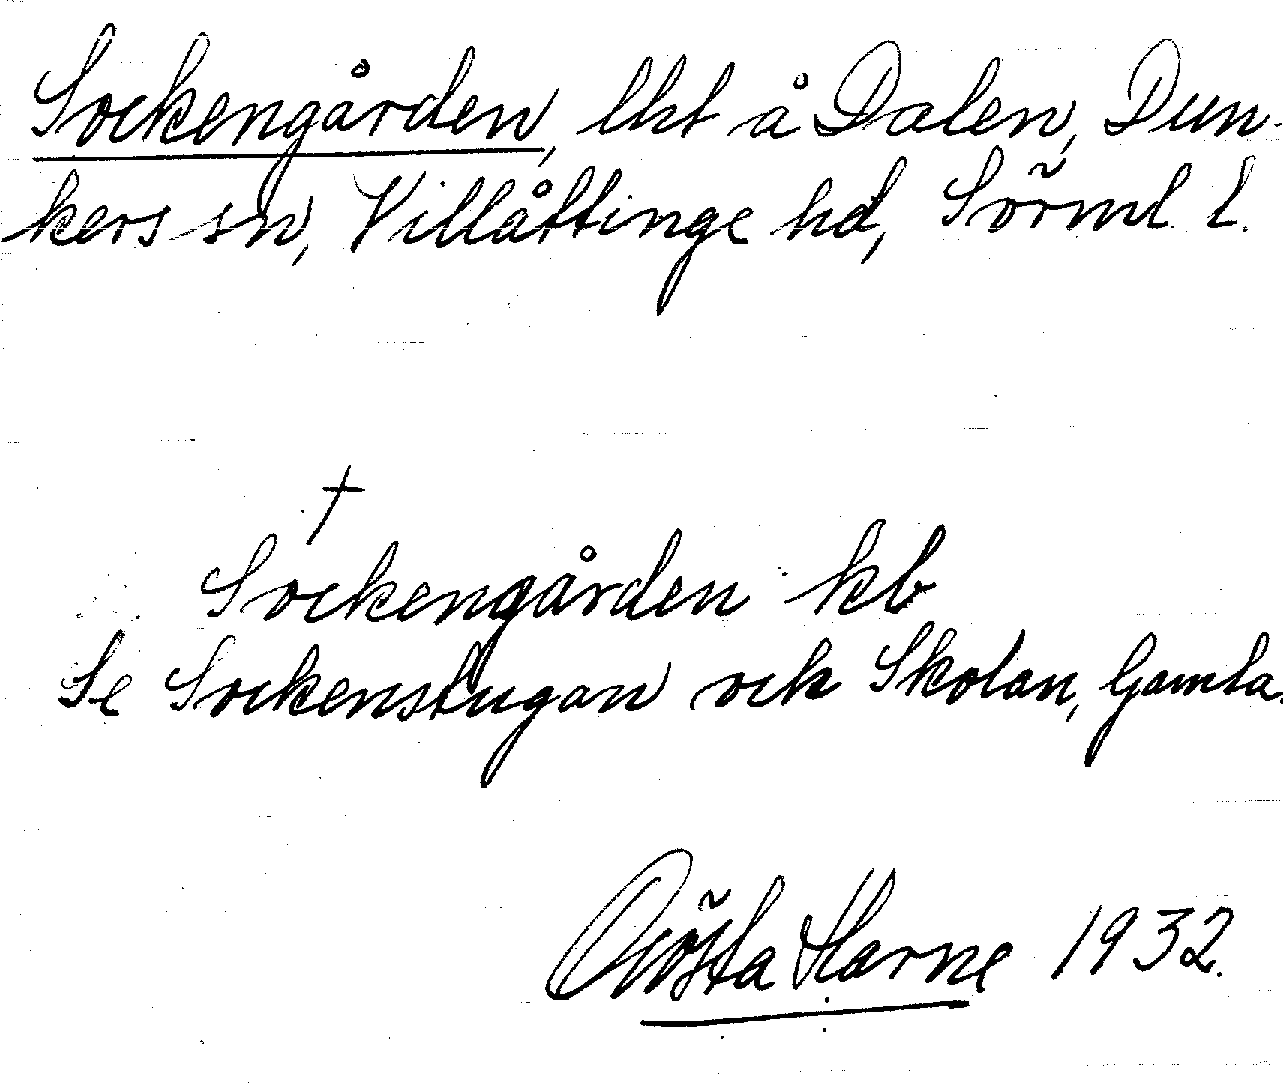 Sockengården, lht å Dalen, Dun-
kers sn, Villåttinge hd, Sörml. l.
†
Sockengården kb
Se Sockenstugan och Skolan, Gamla.
Gösta Harne 1932.